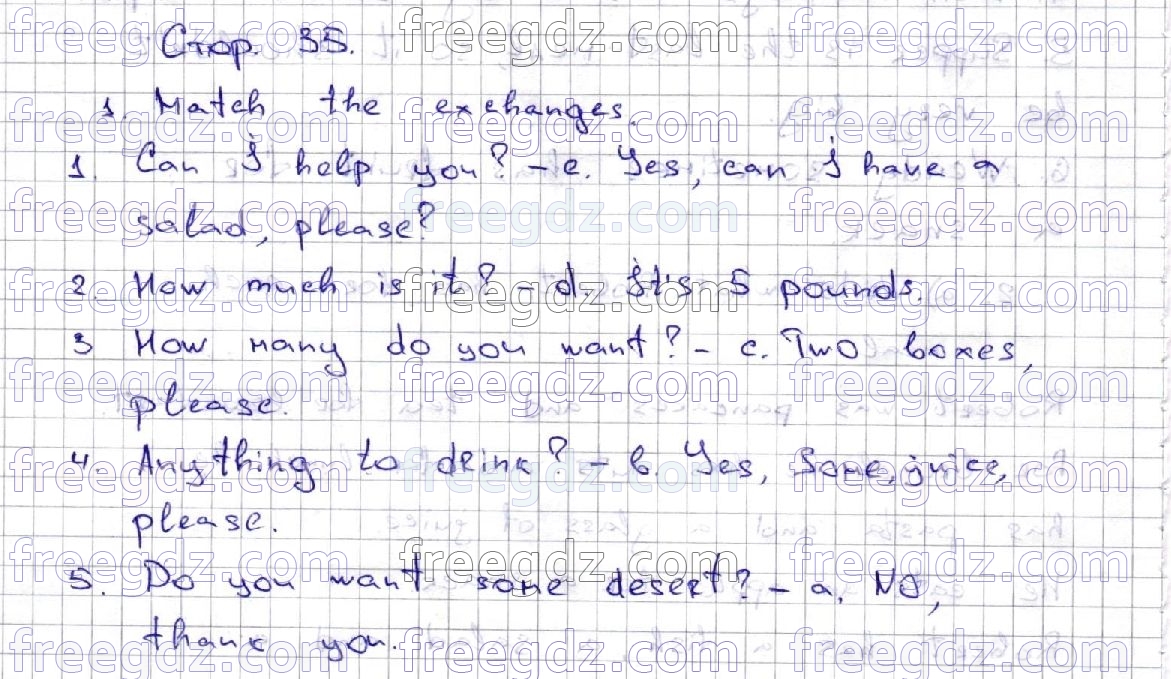 Стор. 35.
1. Match the exchanges.
1. Can I help you? - e. Yes, can I have a
salad, please?
2. How much is it? - d. It's 5 pounds.
3 How many do you want? - c. Two boxes,
please.
4. Anything to drink? - b. Yes, some juice,
please.
5. Do you want some desert? - a. No,
thank you.